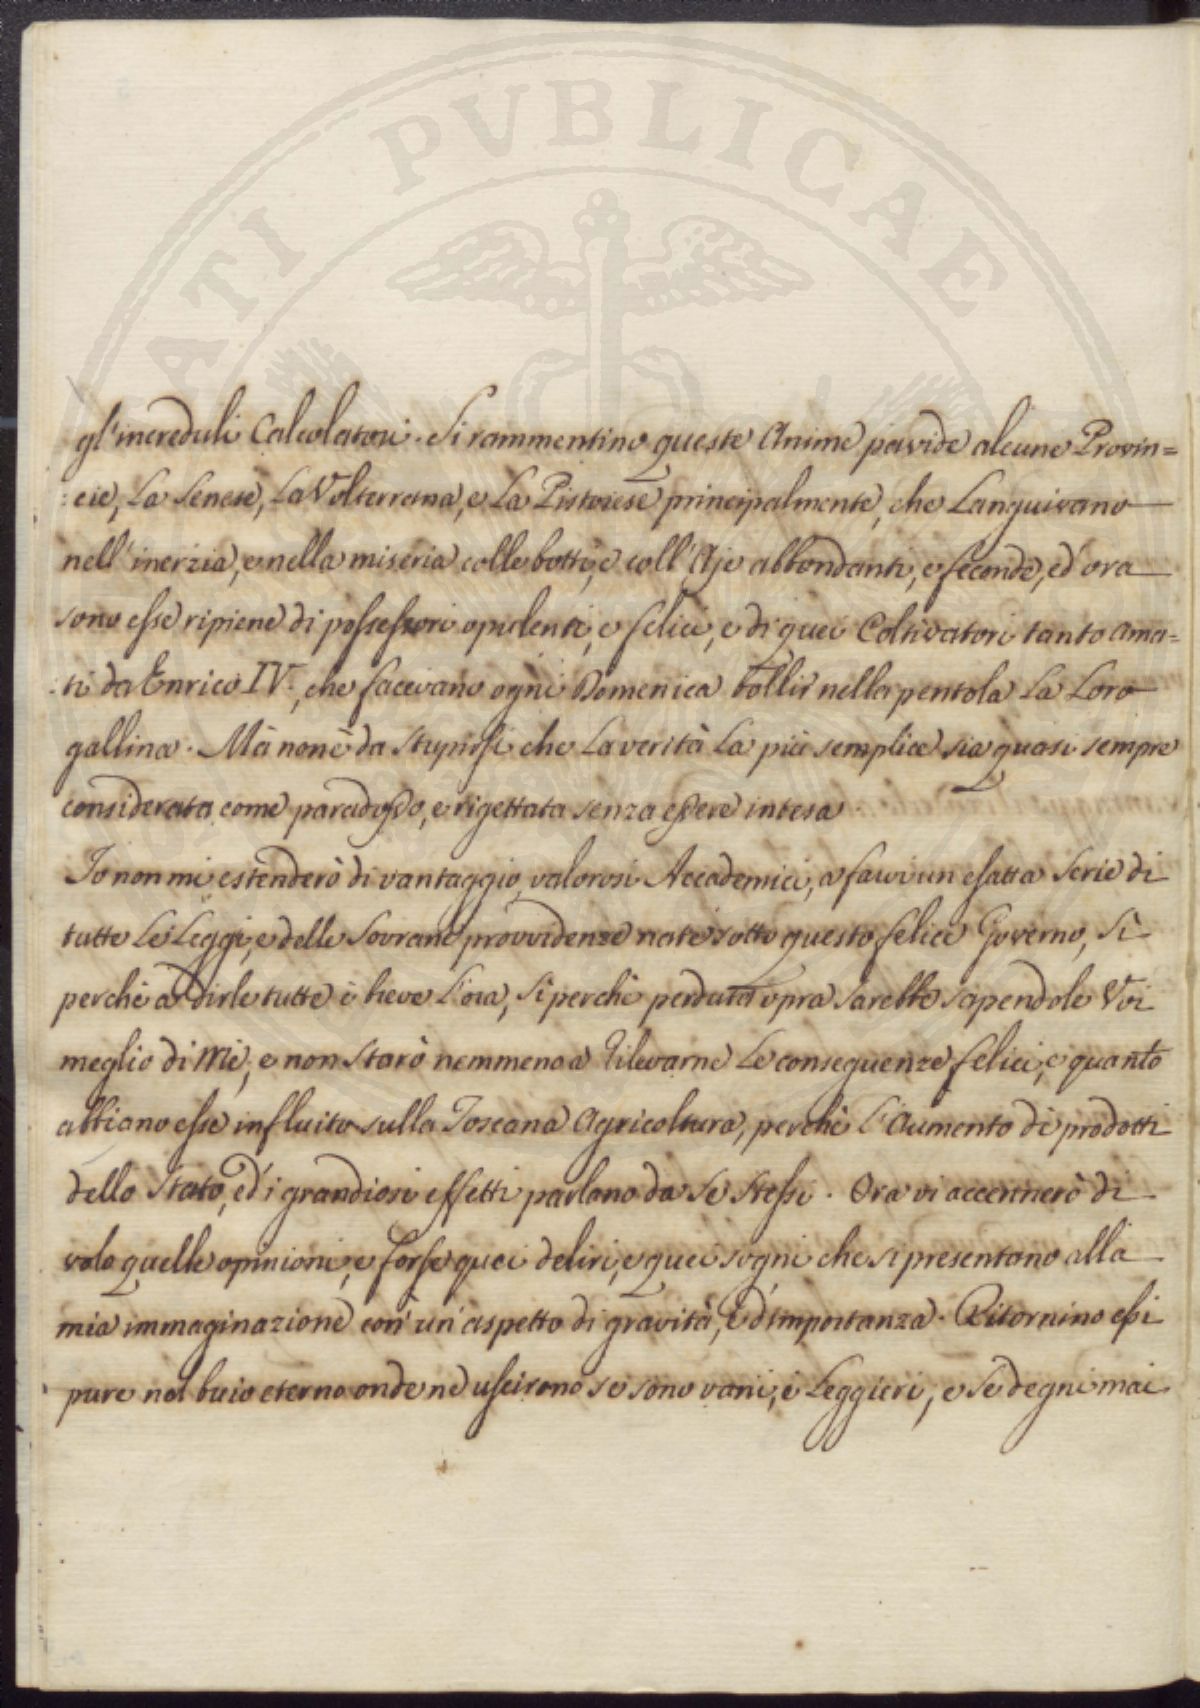 PROSPERITATI PUBLICAE
gl'increduli Calcolatori. Si rammentino queste Anime pavide alcune Provin=
:cie, La Senese, La Volterrana, e La Pistoiese principalmente, che Languivano
nell'inerzia, e nella miseria colle botti, e coll'Aje abbondanti, e feconde, ed ora
sono esse ripiene di possessori opulenti, e felici, e di quei Coltivatori tanto ama=
:ti da Enrico IV., che facevano ogni Domenica bollir nella pentola La Loro
gallina. Mà non è da stupirsi che La verità La più semplice sia quasi sempre
considerata come paradosso, e rigettata senza essere intesa
Io non mi estenderò di vantaggio, valorosi Accademici, a farvi un esatta Serie di
tutte Le Leggi, e delle Sovrane provvidenze nate sotto questo felice Governo, Sì
perchè a dirle tutte è breve L'ora, Sì perchè perduta opra Sarebbe sapendole Voi
meglio di me, e non Starò nemmeno a Rilevarne Le conseguenze felici, e quanto
abbiano esse influito sulla Toscana Agricoltura, perchè L'Aumento di prodotti
dello Stato, ed i grandiosi effetti parlano da Se Stessi. Ora vi accennerò di
volo quelle opinioni, e forse quei deliri, e quei sogni che si presentano alla
mia immaginazione con un'aspetto di gravità, e d'importanza. Ritornino essi
pure nel buio eterno onde ne uscirono se sono vani, e Leggieri, e Se degni mai